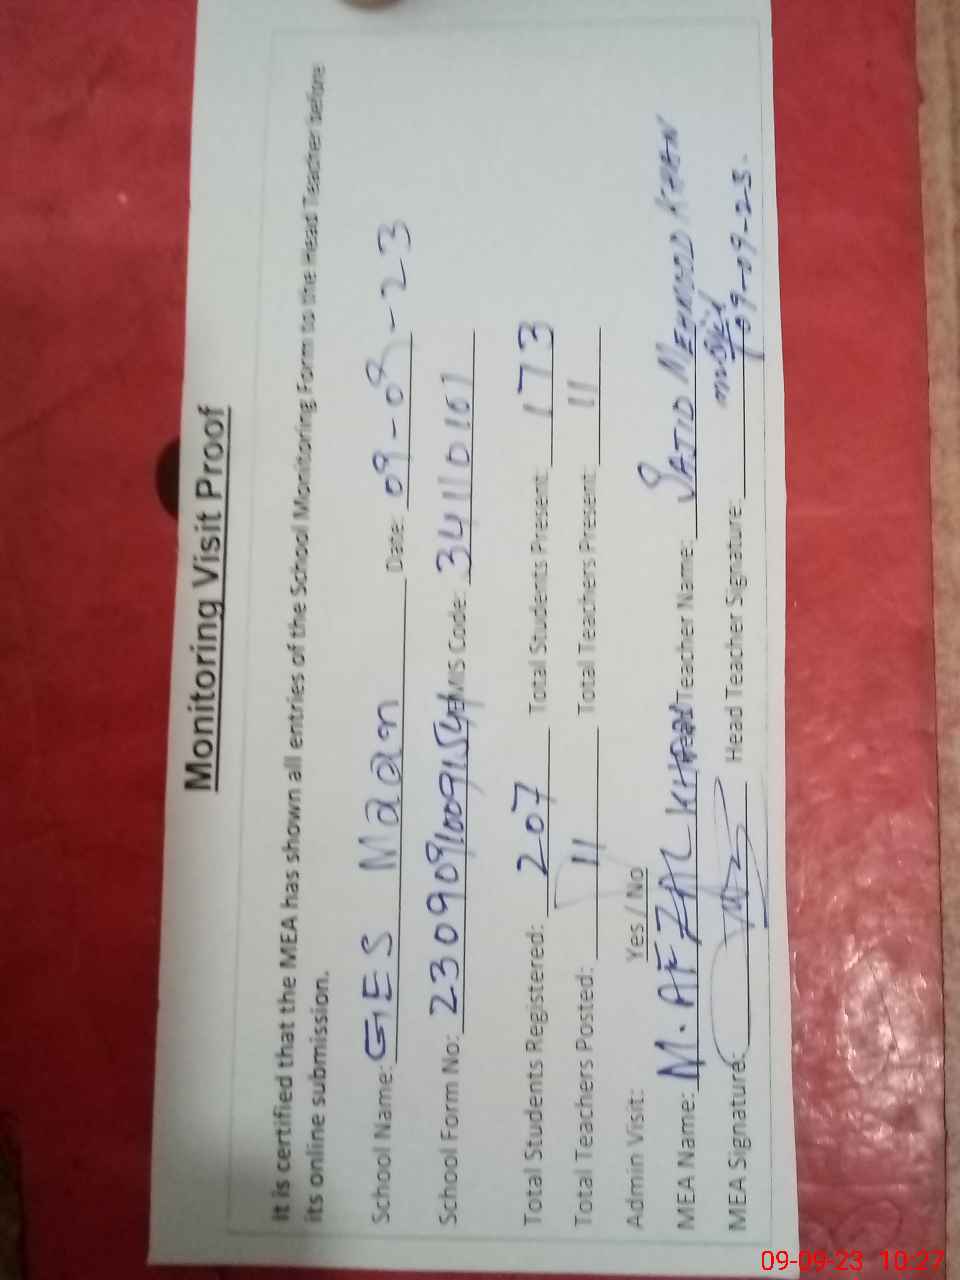 Monitoring Visit Proof
It is certified that the MEA has shown all entries of the School Monitoring Form to the Head Teacher before
its online submission.
School Name: GES Maan Date: 09-09-23
School Form No: EMIS Code: 34110161
Total Students Registered: 207 Total Students Present: 173
Total Teachers Posted: 11 Total Teachers Present: 11
Admin Visit: Yes / No
MEA Name: M. AFZAL KHAN Head Teacher Name: SAJID MEHMOOD KHAN
MEA Signature: Head Teacher Signature: 09-09-23.
09-09-23 10:27